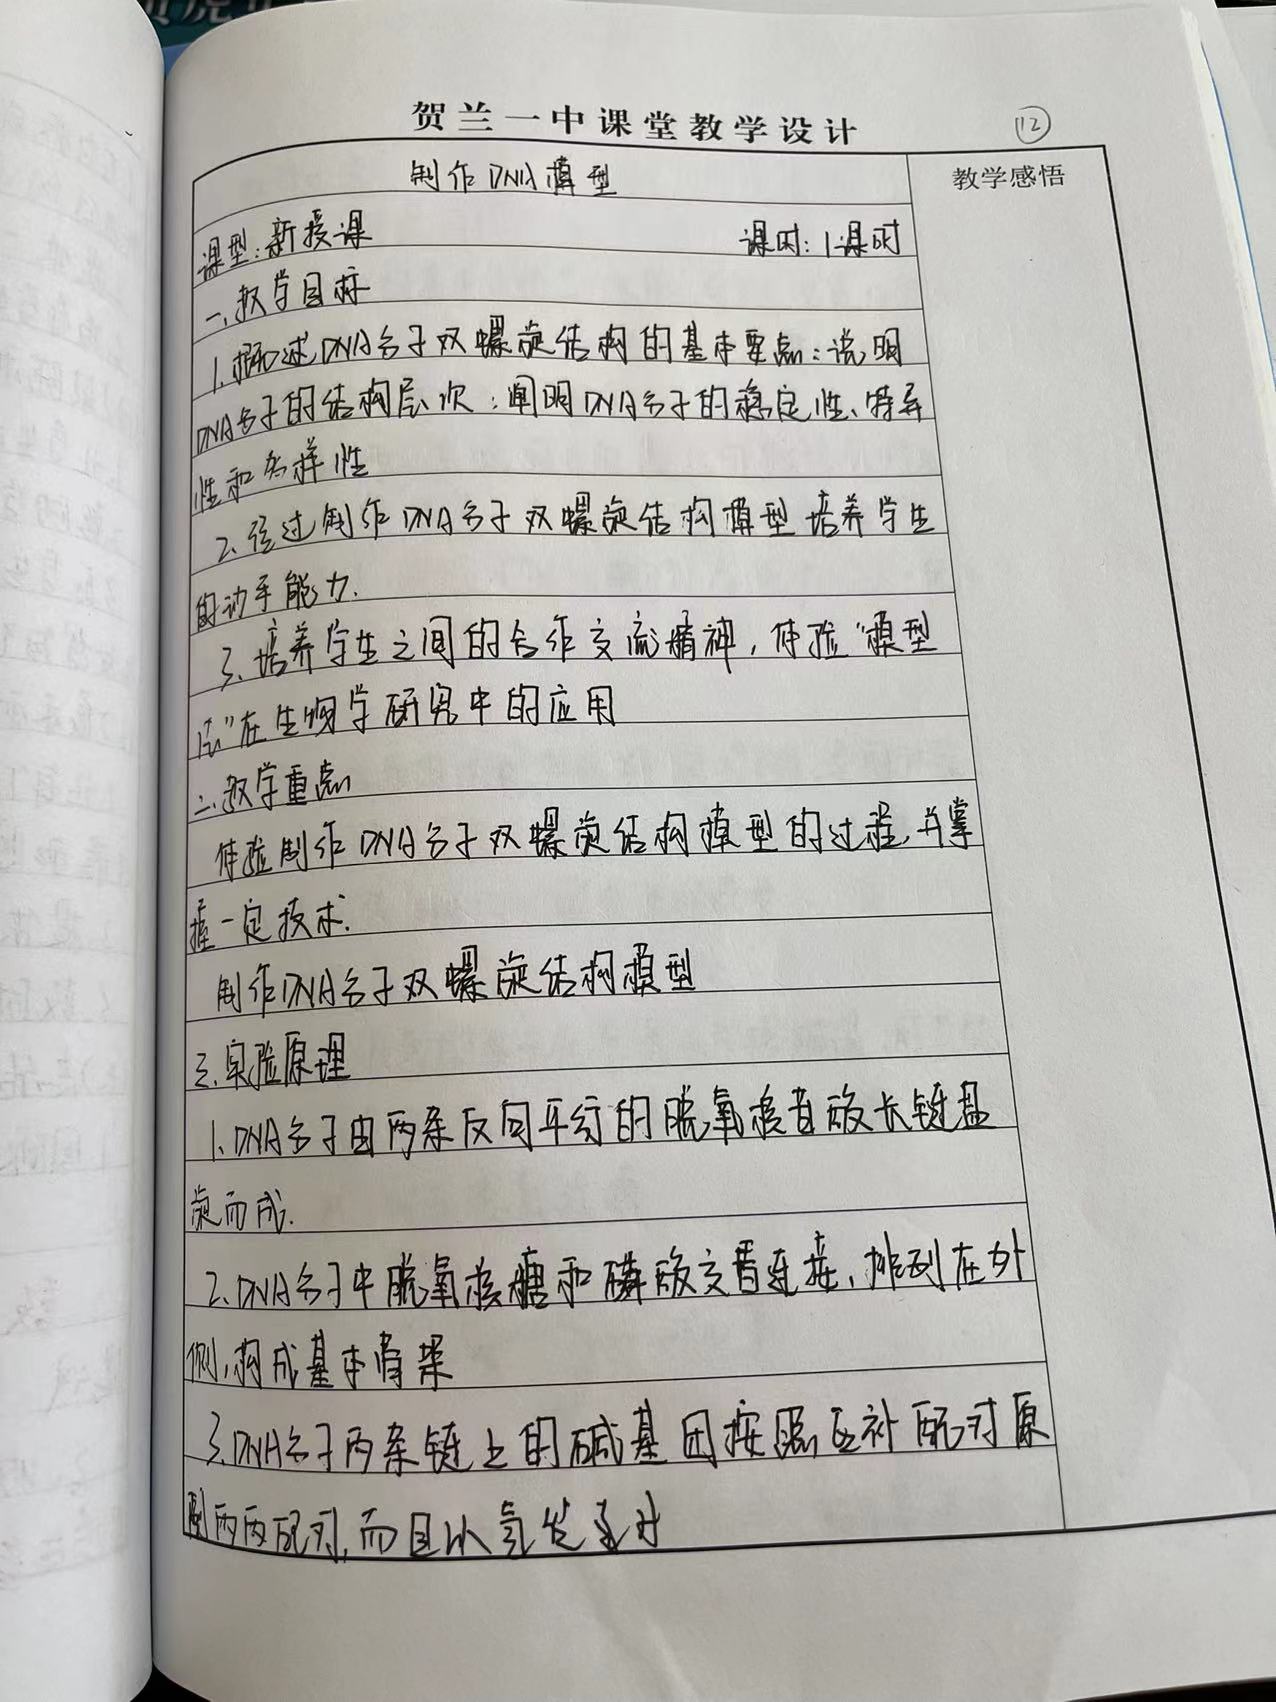 贺兰一中课堂教学设计
12
制作DNA模型
教学感悟
课型:新授课 课时:1课时
一、教学目标
1.概述DNA分子双螺旋结构的基本要点;说明
DNA分子的结构层次;阐明DNA分子的稳定性、特异
性和多样性
2.经过制作DNA分子双螺旋结构模型培养学生
的动手能力.
3.培养学生之间的合作交流精神,体验“模型
法”在生物学研究中的应用
二、教学重点
体验制作DNA分子双螺旋结构模型的过程,并掌
握一定技术.
制作DNA分子双螺旋结构模型
三、实验原理
1.DNA分子由两条反向平行的脱氧核苷酸长链盘
旋而成.
2.DNA分子中脱氧核糖和磷酸交替连接,排列在外
侧,构成基本骨架
3.DNA分子两条链上的碱基 按照互补配对原
则两两配对,而且以氢